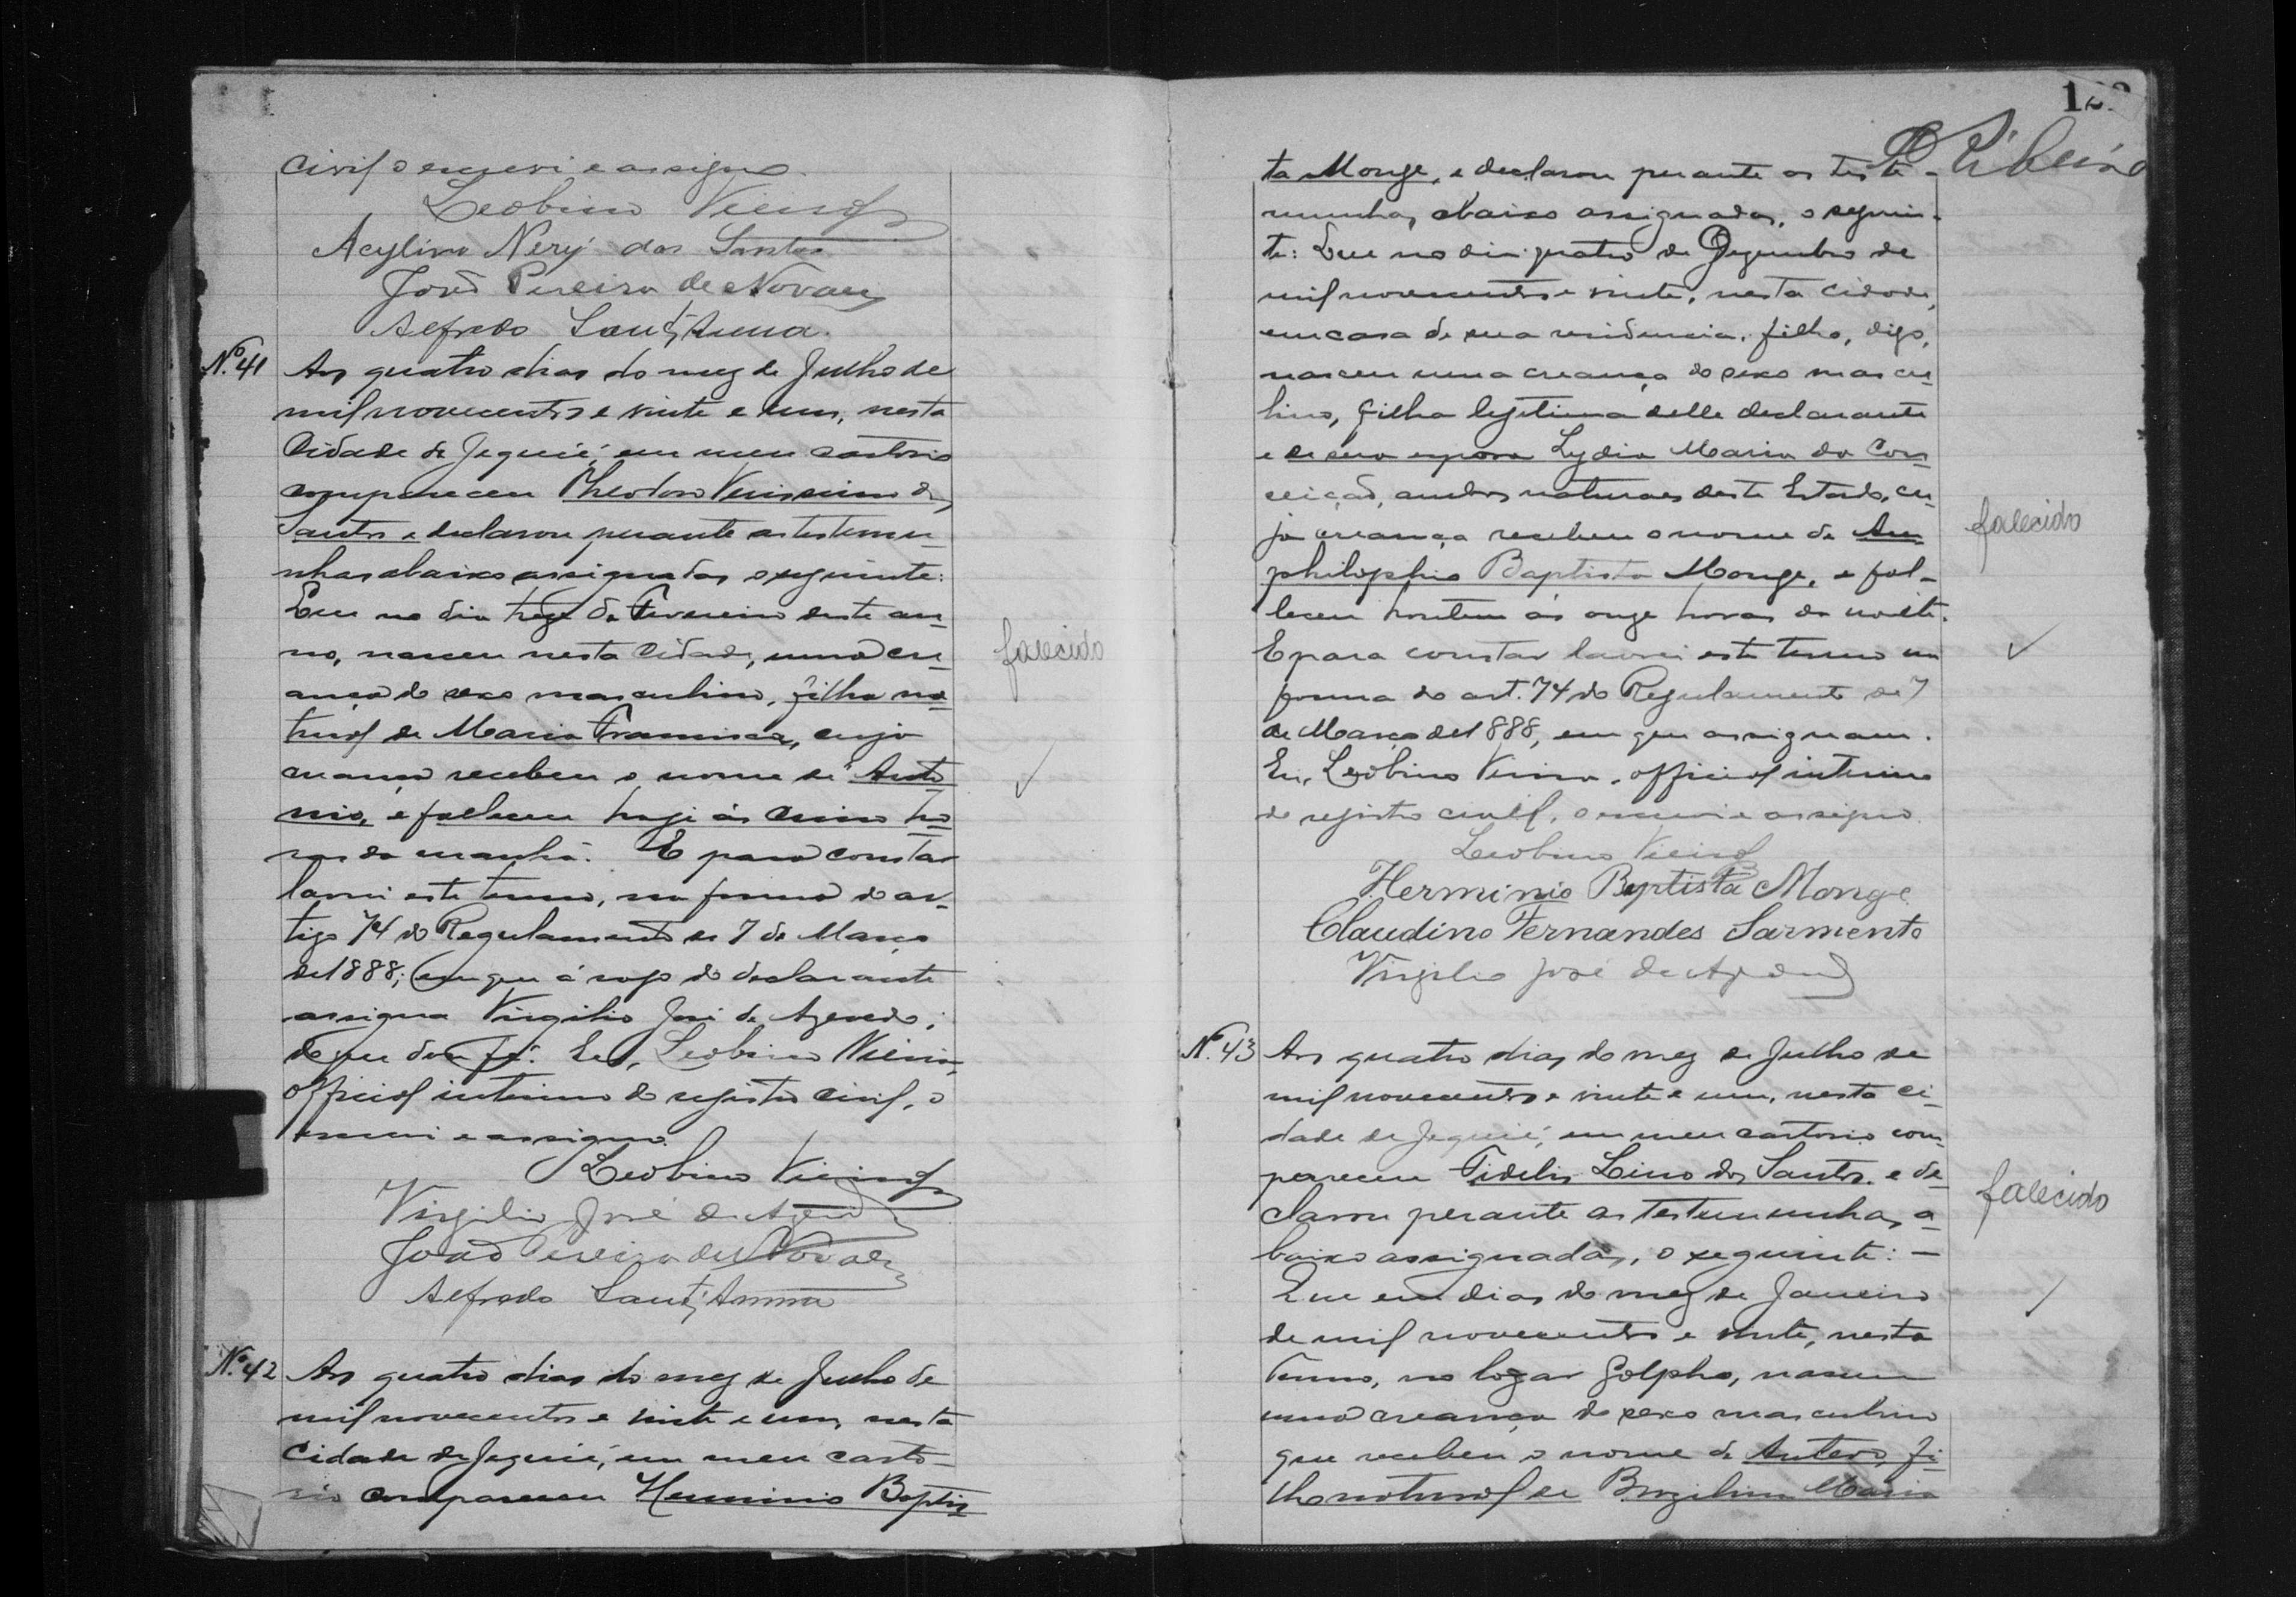 civil o escrevi e assigno.
Leobino Vieira
Acylino Nery dos Santos
João Pereira de Novaes
Alfredo Sant'Anna.
Nº 41 Aos quatro dias do mez de Julho de
mil novecentos e vinte e um, nesta
Cidade de Jequié, em meu cartorio
compareceu Theodoro Verissimo dos
Santos e declarou perante as testemu-
nhas abaixo assignadas o seguinte:
Que no dia treze de Fevereiro deste an-
no, nasceu nesta Cidade, uma cre-
ança do sexo masculino, filha na-
tural de Maria Francisca, cuja
creança recebeu o nome de Anto-
nio, e falleceu hoje ás cinco ho-
ras da manhã. E para constar
lavrei este termo, na forma do ar-
tigo 74 do Regulamento de 7 de Março
de 1888; em que á rogo do declarante
assigna Virgilio José de Azevedo;
do que dou fé. Eu, Leobino Vieira,
official interino do registro civil, o
escrevi e assigno.
Leobino Vieira
Virgilio José de Azevedo
João Pereira de Novaes
Alfredo Sant'Anna
falecido
Nº 42 Aos quatro dias do mez de Julho de
mil novecentos e vinte e um, nesta
Cidade de Jequié, em meu carto-
rio compareceu Herminio Baptis-
Ribeiro
ta Monge, e declarou perante as teste-
munhas abaixo assignadas, o seguin-
te: Que no dia quatro de Dezembro de
mil novecentos e vinte, nesta cidade,
em casa de sua residencia, filho, digo,
nasceu uma creança do sexo mascu-
lino, filha legitima delle declarante
e de sua esposa Lydia Maria da Con-
ceição, ambos naturaes deste Estado, cu-
ja creança recebeu o nome de Am-
philophio Baptista Monge, e fal-
leceu hontem ás onze horas da noite.
E para constar lavrei este termo em
forma do art. 74 do Regulamento de 7
de Março de 1888, em que assignam.
Eu, Leobino Vieira, official interino
do registro civil, o escrevi e assigno.
Leobino Vieira
Herminio Baptista Monge
Claudino Fernandes Sarmento
Virgilio José de Azevedo
falecido
Nº 43 Aos quatro dias do mez de Julho de
mil novecentos e vinte e um, nesta ci-
dade de Jequié, em meu cartorio com-
pareceu Fidelis Lino dos Santos e de-
clarou perante as testemunhas a-
baixo assignadas, o seguinte: —
Que em dias do mez de Janeiro
de mil novecentos e vinte, neste
Termo, no logar Golpho, nasceu
uma creança do sexo masculino
que recebeu o nome de Antero, fi-
lho natural de Brazilina Maria
falecido